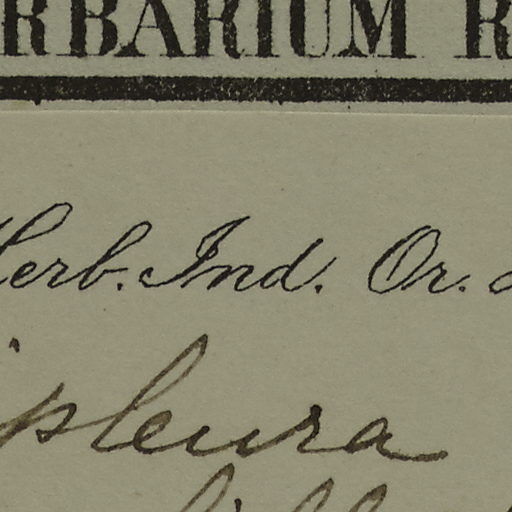 RBARIUM R
Herb. Ind. Or.
ipleura